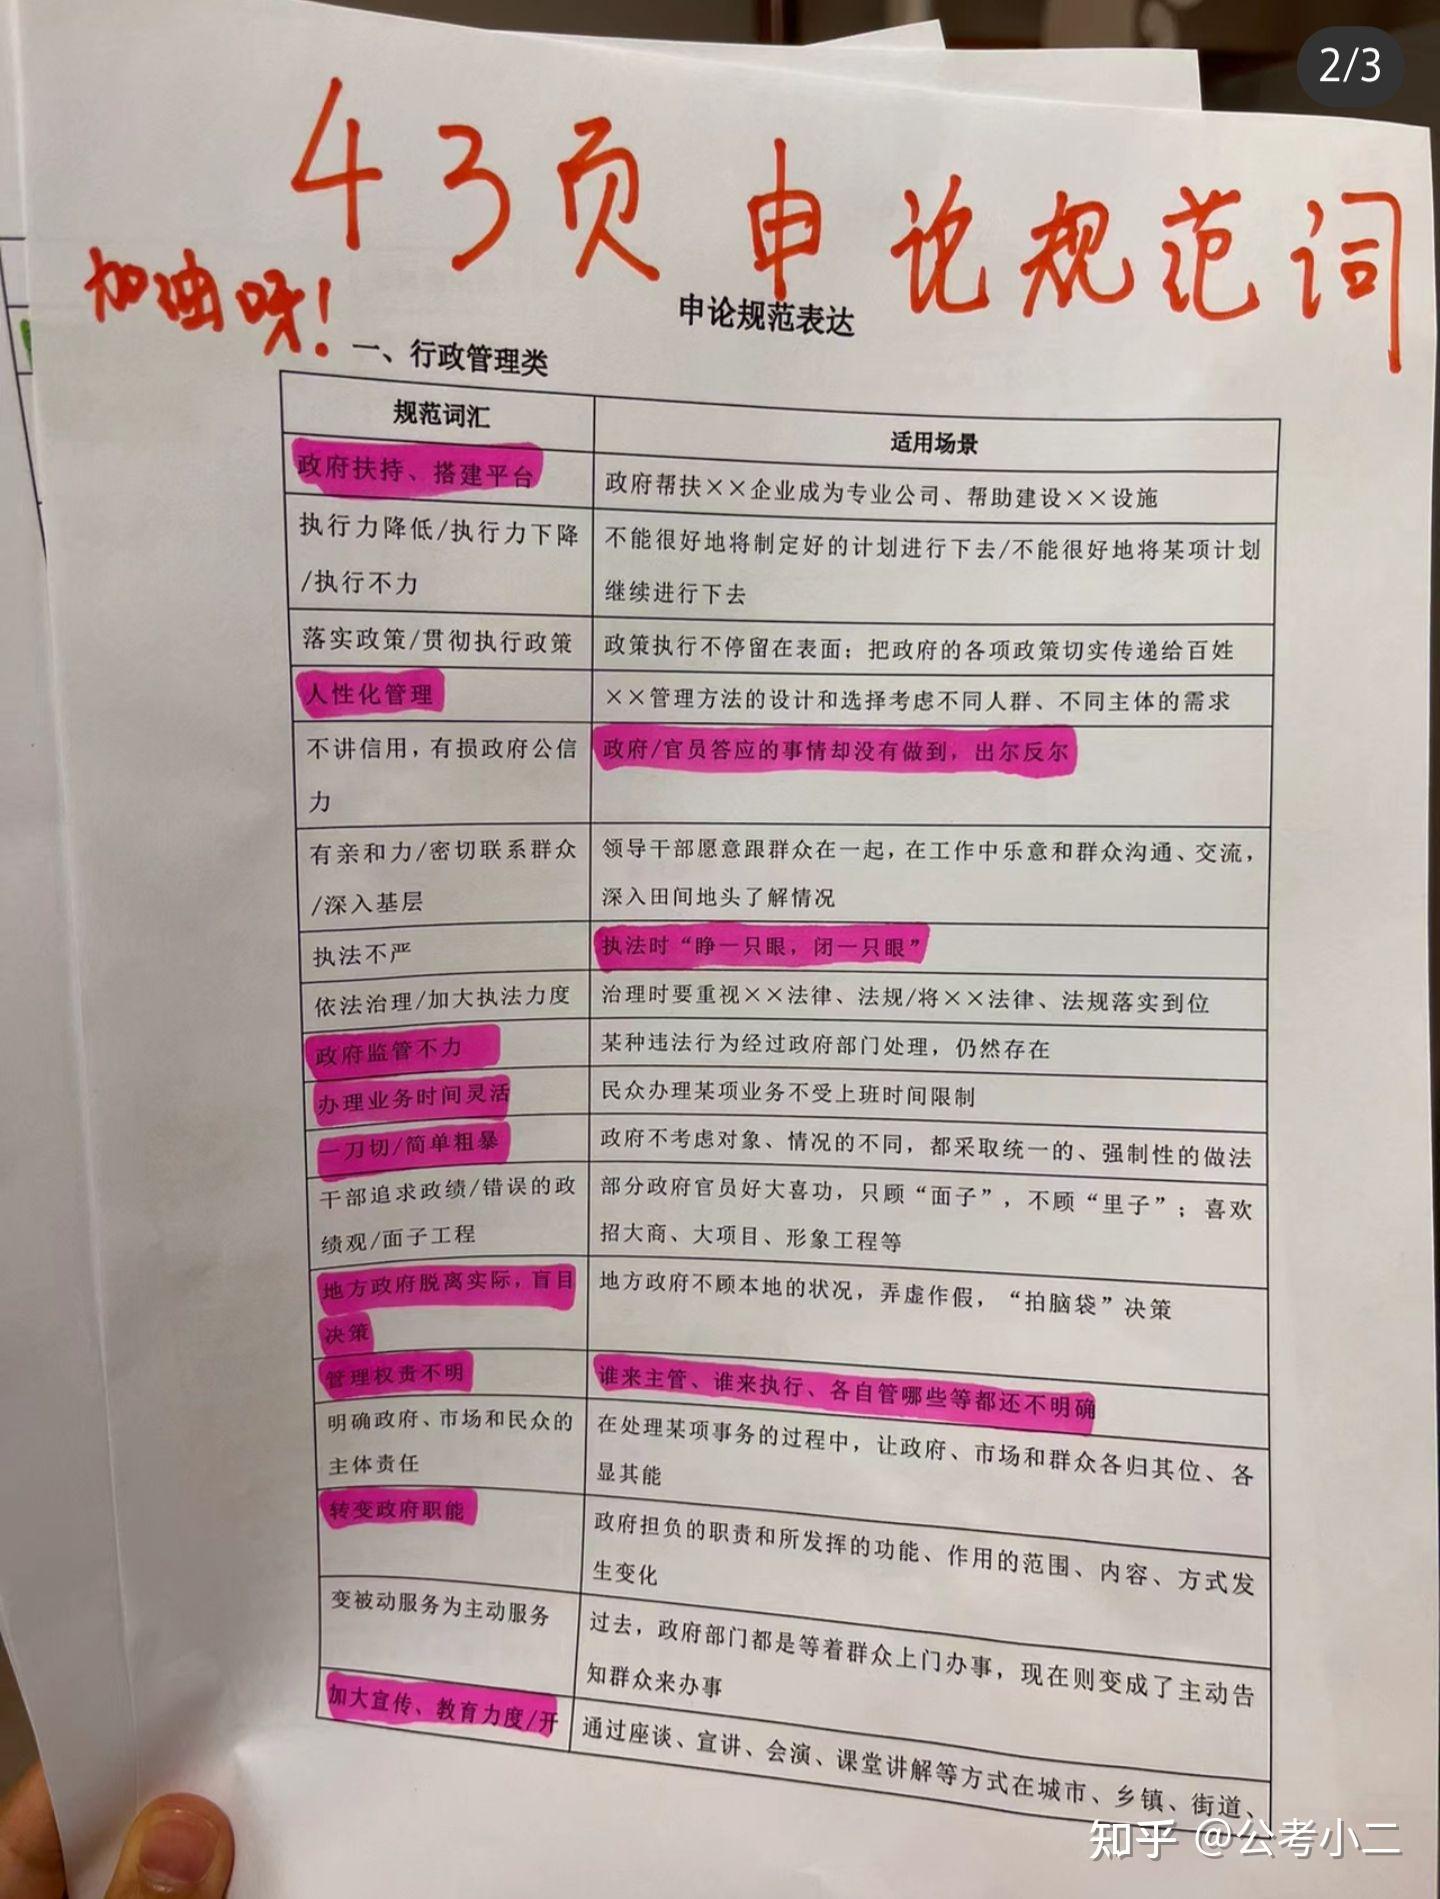 2/3
43页 申论规范词
加油呀！
申论规范表达
一、行政管理类
规范词汇
适用场景
政府扶持、搭建平台
政府帮扶××企业成为专业公司、帮助建设××设施
执行力降低/执行力下降
/执行不力
不能很好地将制定好的计划进行下去/不能很好地将某项计划
继续进行下去
落实政策/贯彻执行政策
政策执行不停留在表面；把政府的各项政策切实传递给百姓
人性化管理
××管理方法的设计和选择考虑不同人群、不同主体的需求
不讲信用，有损政府公信
力
政府/官员答应的事情却没有做到，出尔反尔
有亲和力/密切联系群众
/深入基层
领导干部愿意跟群众在一起，在工作中乐意和群众沟通、交流，
深入田间地头了解情况
执法不严
执法时“睁一只眼，闭一只眼”
依法治理/加大执法力度
治理时要重视××法律、法规/将××法律、法规落实到位
政府监管不力
某种违法行为经过政府部门处理，仍然存在
办理业务时间灵活
民众办理某项业务不受上班时间限制
一刀切/简单粗暴
政府不考虑对象、情况的不同，都采取统一的、强制性的做法
干部追求政绩/错误的政
绩观/面子工程
部分政府官员好大喜功，只顾“面子”，不顾“里子”；喜欢
招大商、大项目、形象工程等
地方政府脱离实际，盲目
决策
地方政府不顾本地的状况，弄虚作假，“拍脑袋”决策
管理权责不明
谁来主管、谁来执行、各自管哪些等都还不明确
明确政府、市场和民众的
主体责任
在处理某项事务的过程中，让政府、市场和群众各归其位、各
显其能
转变政府职能
政府担负的职责和所发挥的功能、作用的范围、内容、方式发
生变化
变被动服务为主动服务
过去，政府部门都是等着群众上门办事，现在则变成了主动告
知群众来办事
加大宣传、教育力度/开
通过座谈、宣讲、会演、课堂讲解等方式在城市、乡镇、街道、
知乎 @公考小二